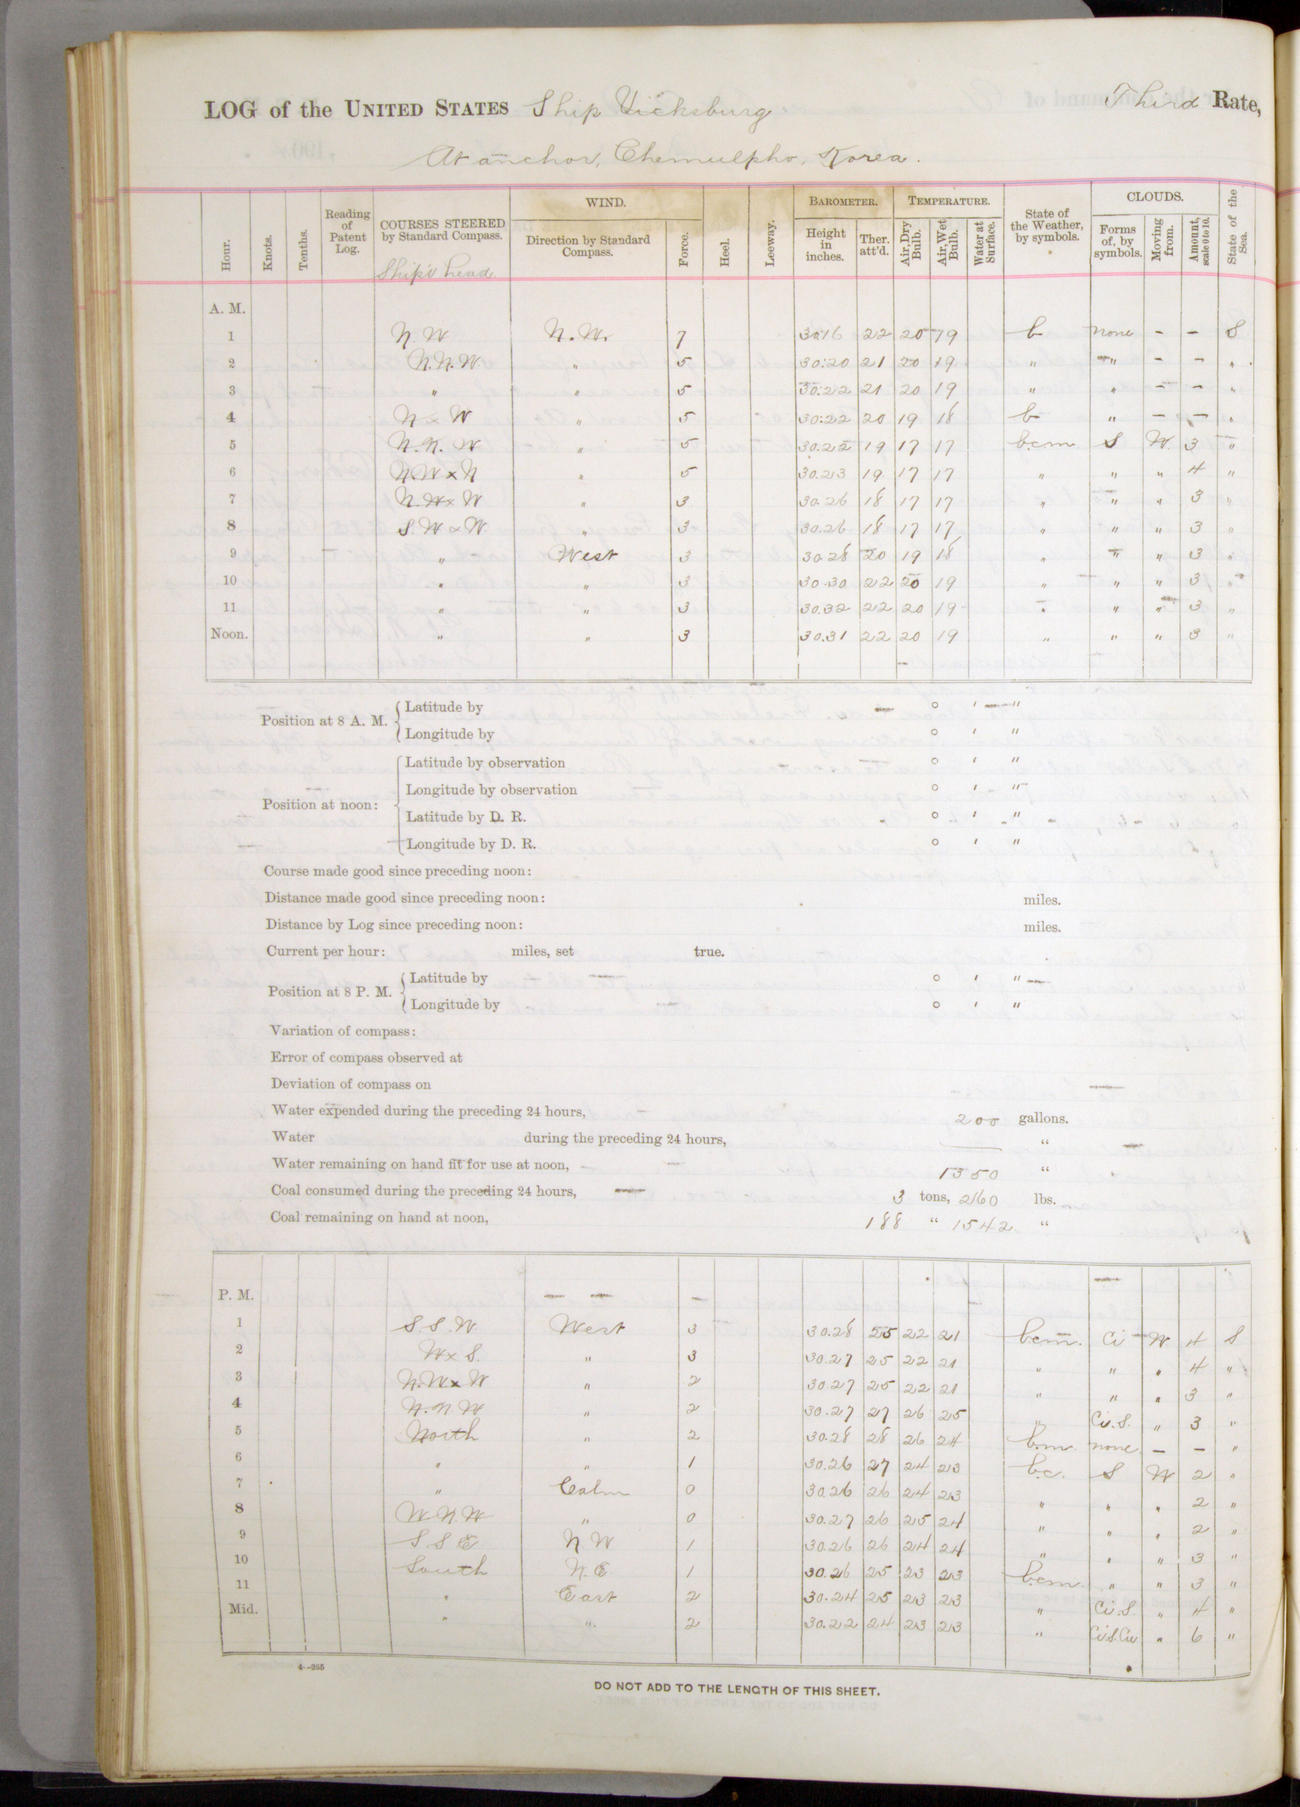 LOG of the UNITED STATES Ship Vicksburg Third Rate,
At anchor, Chemulpho, Korea.
Hour. Knots. Tenths. Reading of Patent Log. COURSES STEERED by Standard Compass. WIND. Direction by Standard Compass. Force. Heel. Leeway. BAROMETER. Height in inches. Ther. att'd. TEMPERATURE. Air, Dry Bulb. Air, Wet Bulb. Water at Surface. State of the Weather, by symbols. CLOUDS. Forms of, by symbols. Moving from. Amount, scale 0 to 10. State of the Sea.
Ship's head
A. M.
1 N.W N.W. 7 30.16 22 20 19 b none - - S
2 N.N.W. " 5 30.20 21 20 19 " " - - "
3 " " 5 30.22 21 20 19 " " - - "
4 N x W " 5 30.22 20 19 18 b " - - "
5 N.N.W " 5 30.25 19 17 17 bcm S W. 3 "
6 N.W x N " 5 30.23 19 17 17 " " " 4 "
7 N.W x W " 3 30.26 18 17 17 " " " 3 "
8 S.W x W. " 3 30.26 18 17 17 " " " 3 "
9 " West 3 30.28 20 19 18 " " " 3 "
10 " " 3 30.30 22 20 19 " " " 3 "
11 " " 3 30.32 22 20 19 " " " 3 "
Noon. " " 3 30.31 22 20 19 " " " 3 "
Position at 8 A. M. Latitude by ° ' "
Longitude by ° ' "
Position at noon: Latitude by observation ° ' "
Longitude by observation ° ' "
Latitude by D. R. ° ' "
Longitude by D. R. ° ' "
Course made good since preceding noon:
Distance made good since preceding noon: miles.
Distance by Log since preceding noon: miles.
Current per hour: miles, set true.
Position at 8 P. M. Latitude by ° ' "
Longitude by ° ' "
Variation of compass:
Error of compass observed at
Deviation of compass on
Water expended during the preceding 24 hours, 200 gallons.
Water during the preceding 24 hours, "
Water remaining on hand fit for use at noon, 1350 "
Coal consumed during the preceding 24 hours, 3 tons, 2160 lbs.
Coal remaining on hand at noon, 188 " 1542 "
P. M.
1 S.S.W West 3 30.28 25 22 21 bcm. Ci W 4 S
2 W x S. " 3 30.27 25 22 21 " " " 4 "
3 N.W x W " 2 30.27 25 22 21 " " " 3 "
4 N.N.W " 2 30.27 27 26 25 " Ci.S. " 3 "
5 North " 2 30.28 28 26 24 b.m. none - - "
6 " " 1 30.26 27 24 23 b.c. S W 2 "
7 " Calm 0 30.26 26 24 23 " " " 2 "
8 W.N.W " 0 30.27 26 25 24 " " " 2 "
9 S S E N W 1 30.26 26 24 24 " " " 3 "
10 South N.E 1 30.26 25 23 23 bcm. " " 3 "
11 " East 2 30.24 25 23 23 " Ci.S. " 4 "
Mid. " " 2 30.22 24 23 23 " Ci.S.Cu " 6 "
4--265
DO NOT ADD TO THE LENGTH OF THIS SHEET.